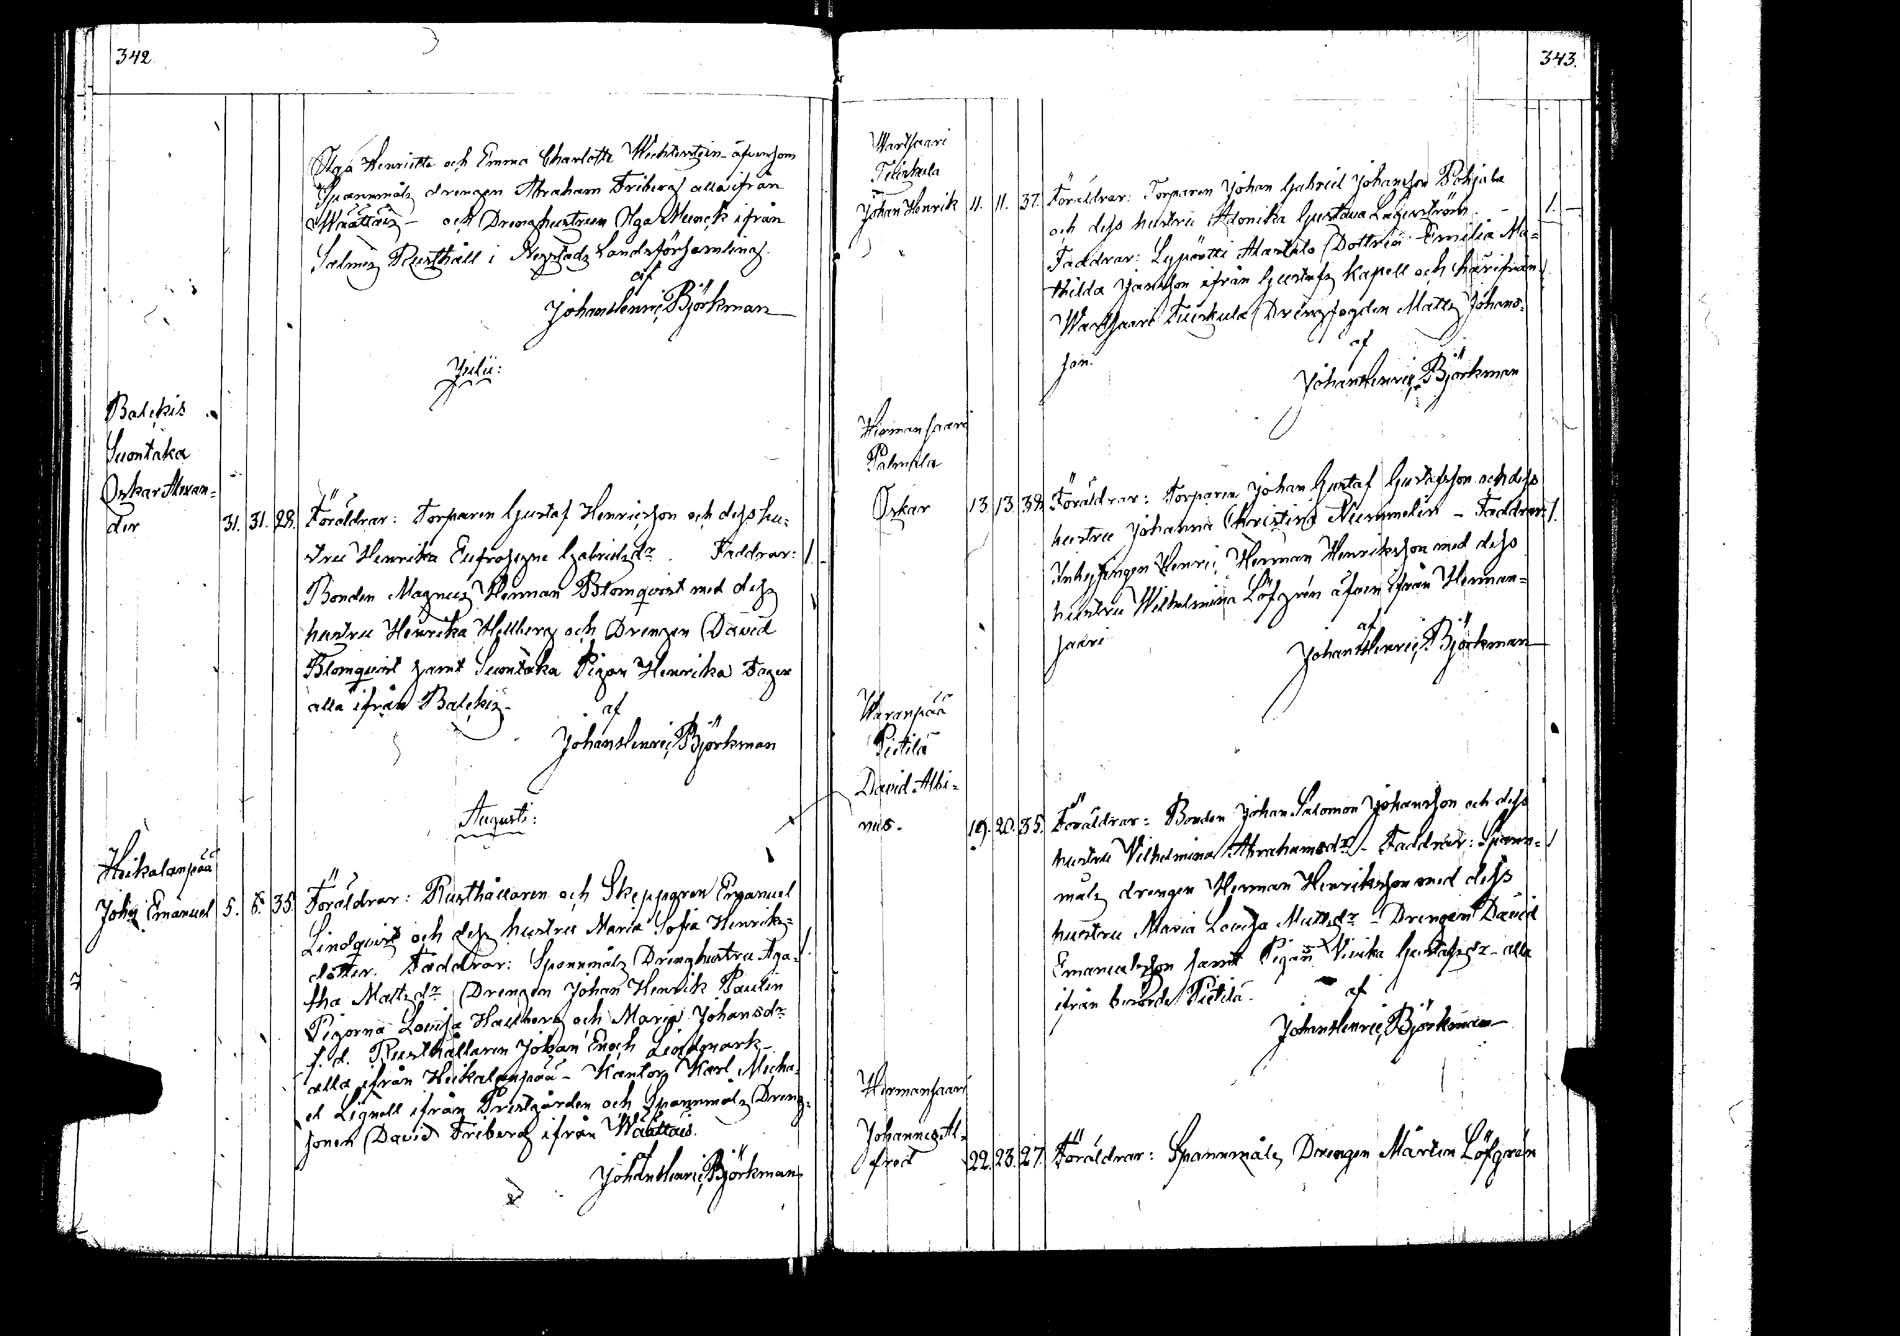 342.
Olga Henriette och Emma Charlotte Wechterstein - äfvensom
Spannmåls drengen Abraham Friberg alla ifrån
Wäättäis - och Drenghustrun Olga Munck ifrån
Salmis Rusthåll i Nystads Landsförsamling.
af
Johan Henric Björkman
Julii:
Balckis
Suontaka
Oskar Alexan=
der 31. 31. 28. Föräldrar: Torparen Gustaf Henricsson och dess hu=
stru Henrika Eufrosyne Gabrielsdr. Faddrar: 1.
Bonden Magnus Herman Blomqvist med dess
hustru Henrika Hellberg och Drengen David
Blomqvist samt Suontaka Pigan Henrika Fager
alla ifrån Balckis -
af
Johan Henric Björkman
Augusti:
Heikalanpää
John Emanuel 5. 6. 35. Föräldrar: Rusthållaren och Skepparen Emanuel
Lindqvist och dess hustru Maria Sofia Henriks=
dotter. Faddrar: Spannmåls Drenghustru Aga= 1.
tha Mattsdr Drengen Johan Henrik Paulin
Pigorna Lovisa Hallberg och Maria Johansdr
f. d. Rusthållaren Johan Enoch Lindmark -
alla ifrån Heikalanpää - Kantor Karl Micha=
el Lignell ifrån Prestgården och Spannmåls Dreng=
sonen David Friberg ifrån Wäättäis.
Johan Henric Björkman
343.
Wartsaari
Tuiskula
Johan Henrik 11. 11. 37. Föräldrar: Torparen Johan Gabriel Johansson Pohjala 1.
och dess hustru Adonika Gustava Lagerström. -
Faddrar: Lypörtti Alastalo Dottren Emilia Ma=
thilda Jansson ifrån Gustafs Kapell och härifrån
Wartsaari Tuiskula Drengfogden Matts Johans=
son.
af
Johan Henric Björkman
Hermansaari
Palmula
Oskar 13. 13. 38. Föräldrar: Torparen Johan Gustaf Gustafsson och dess
hustru Johanna Christina Nummelin - Faddrar: 1.
Inhysingen Henric Herman Henriksson med dess
hustru Wilhelmina Löfgrén äfven ifrån Herman=
saari
af
Johan Henric Björkman
Waranpää
Pietilä
David Albi=
nus. 19. 20. 35. Föräldrar: Bonden Johan Salomon Johansson och dess
hustru Vilhelmina Abrahamsdr - Faddrar: Spann= 1
måls drengen Herman Henriksson med dess
hustru Maria Lovisa Mattsdr - Drengen David
Emanuelsson samt Pigan Vivika Gustafsdr - alla
ifrån berörde Pietilä.
af
Johan Henric Björkman
Hermansaari
Johannes Al=
fred 22. 23. 27. Föräldrar: Spannmåls Drengen Mårten Löfgrén